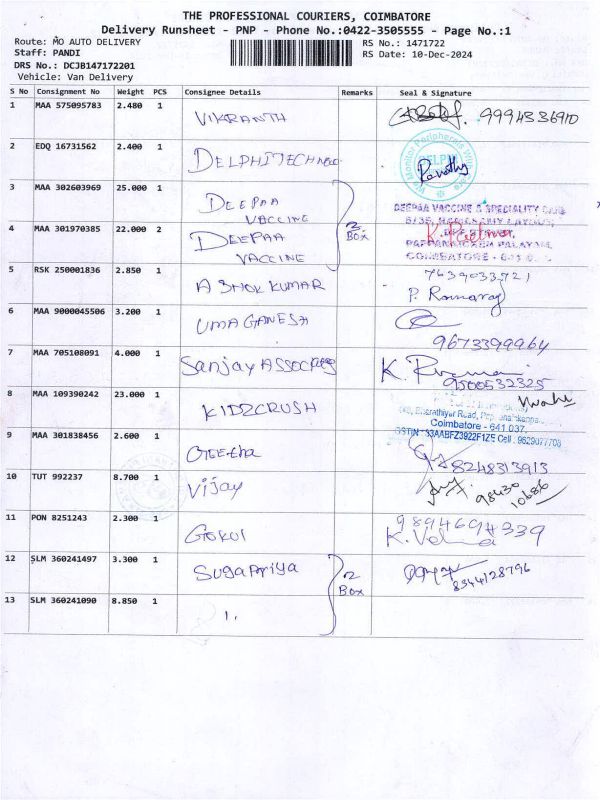 THE PROFESSIONAL COURIERS, COIMBATORE
Delivery Runsheet - PNP - Phone No.:0422-3505555 - Page No.:1
Route: MO AUTO DELIVERY
RS No.: 1471722
Staff: PANDI
RS Date: 10-Dec-2024
DRS No.: DCJB147172201
Vehicle: Van Delivery
S No Consignment No Weight PCS Consignee Details Remarks Seal & Signature
1 MAA 575095783 2.480 1 VIKRANTH 9994336910
2 EDQ 16731562 2.400 1 DELPHITECHNOLO
3 MAA 302603969 25.000 1 DEEPAA VACCINE
DEEPAA VACCINE & SPECIALITY CARE
4 MAA 301970385 22.000 2 DEEPAA VACCINE 3 BOX
COIMBATORE
5 RSK 250001836 2.850 1 ASHOK KUMAR 7639033721
P. Ramaraj
6 MAA 9000045506 3.200 1 UMA GANESH 9673399964
7 MAA 705108091 4.000 1 Sanjay ASSOCIATES 9500532325
8 MAA 109390242 23.000 1 KIDZCRUSH
Bharathiyar Road,
Coimbatore - 641 037.
GSTIN : 33AABFZ3922F1Z5 Cell : 9629077708
9 MAA 301838456 2.600 1 Geetha 8248313913
10 TUT 992237 8.700 1 Vijay 98430 10686
11 PON 8251243 2.300 1 GOKUl 9894694339
12 SLM 360241497 3.300 1 Sugapriya 2 Box 8344128796
13 SLM 360241090 8.850 1 1.